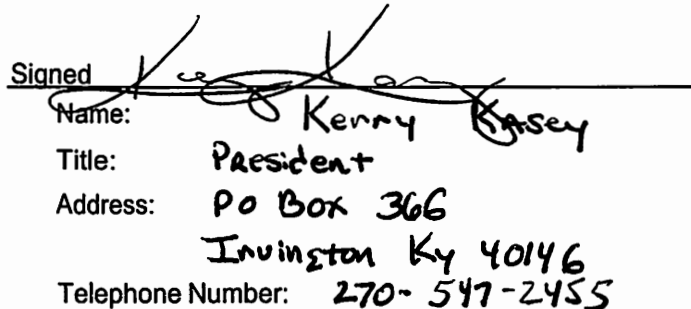 Signed
Name: Kerry Kasey
Title: President
Address: PO Box 366
Irvington Ky 40146
Telephone Number: 270-547-2455